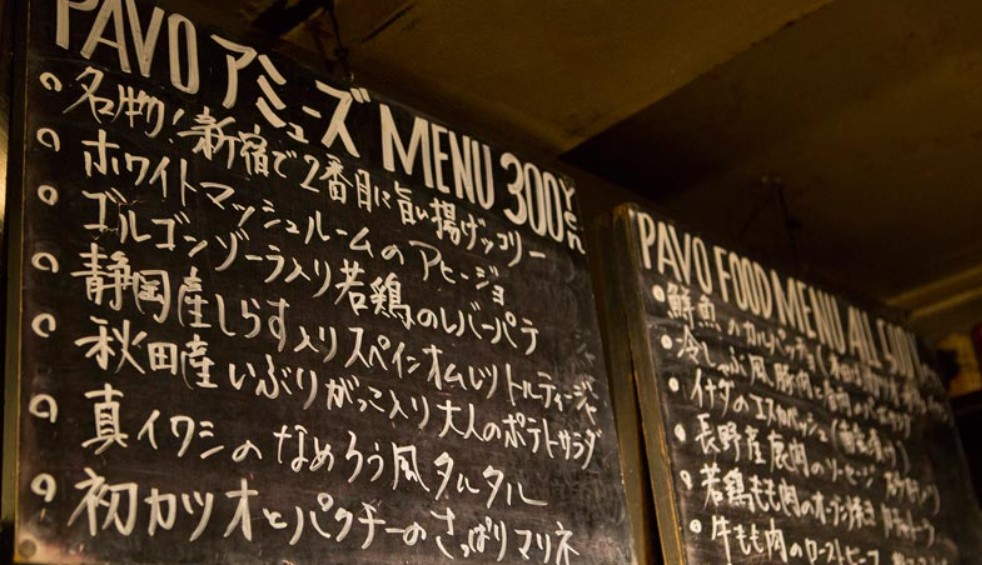 PAVO アミューズ MENU 300Yen
名物！新宿で2番目に旨い揚げッコリー
ホワイトマッシュルームのアヒージョ
ゴルゴンゾーラ入り若鶏のレバーパテ
静岡産しらす入りスペインオムレツ トルティージャ
秋田産いぶりがっこ入り大人のポテトサラダ
真イワシのなめろう風タルタル
初カツオとパクチーのさっぱりマリネ
PAVO FOOD MENU ALL
鮮魚のカルパッチョ
冷しゃぶ風豚肉と
イナダのエスカベッシュ
長野産鹿肉のソーセージ
若鶏もも肉のオーブン焼き
牛もも肉のローストビーフ